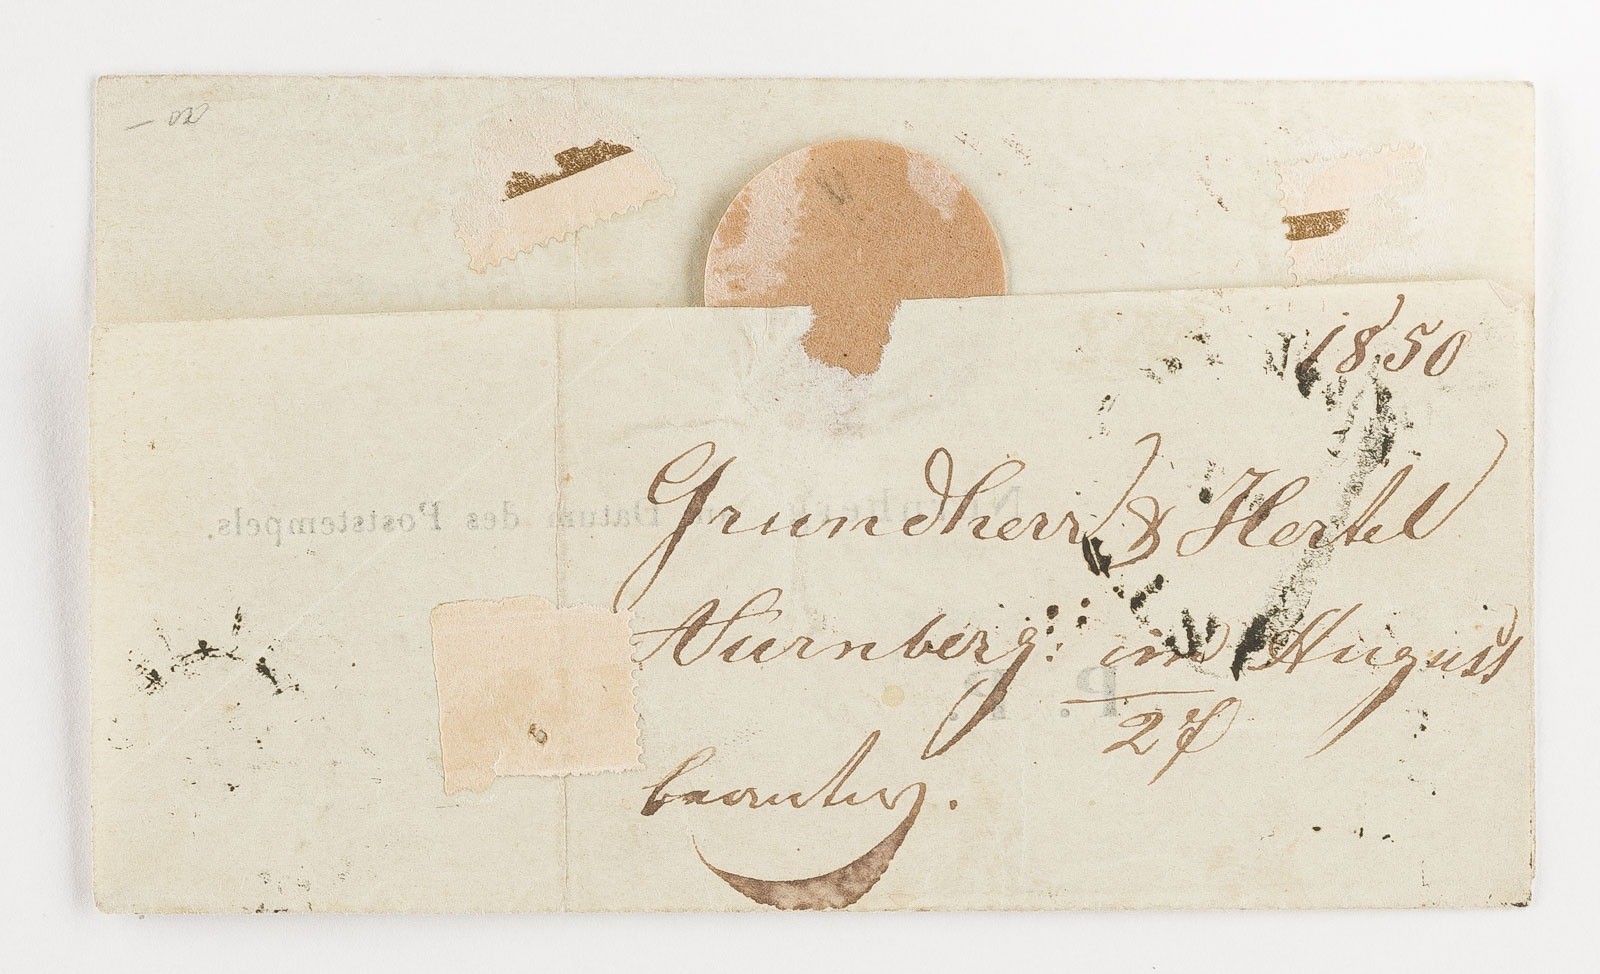 1850
Grundherr & Hertel
Nürnberg: im August
27
beantw.
Nürnberg, Datum des Poststempels.
P. P.